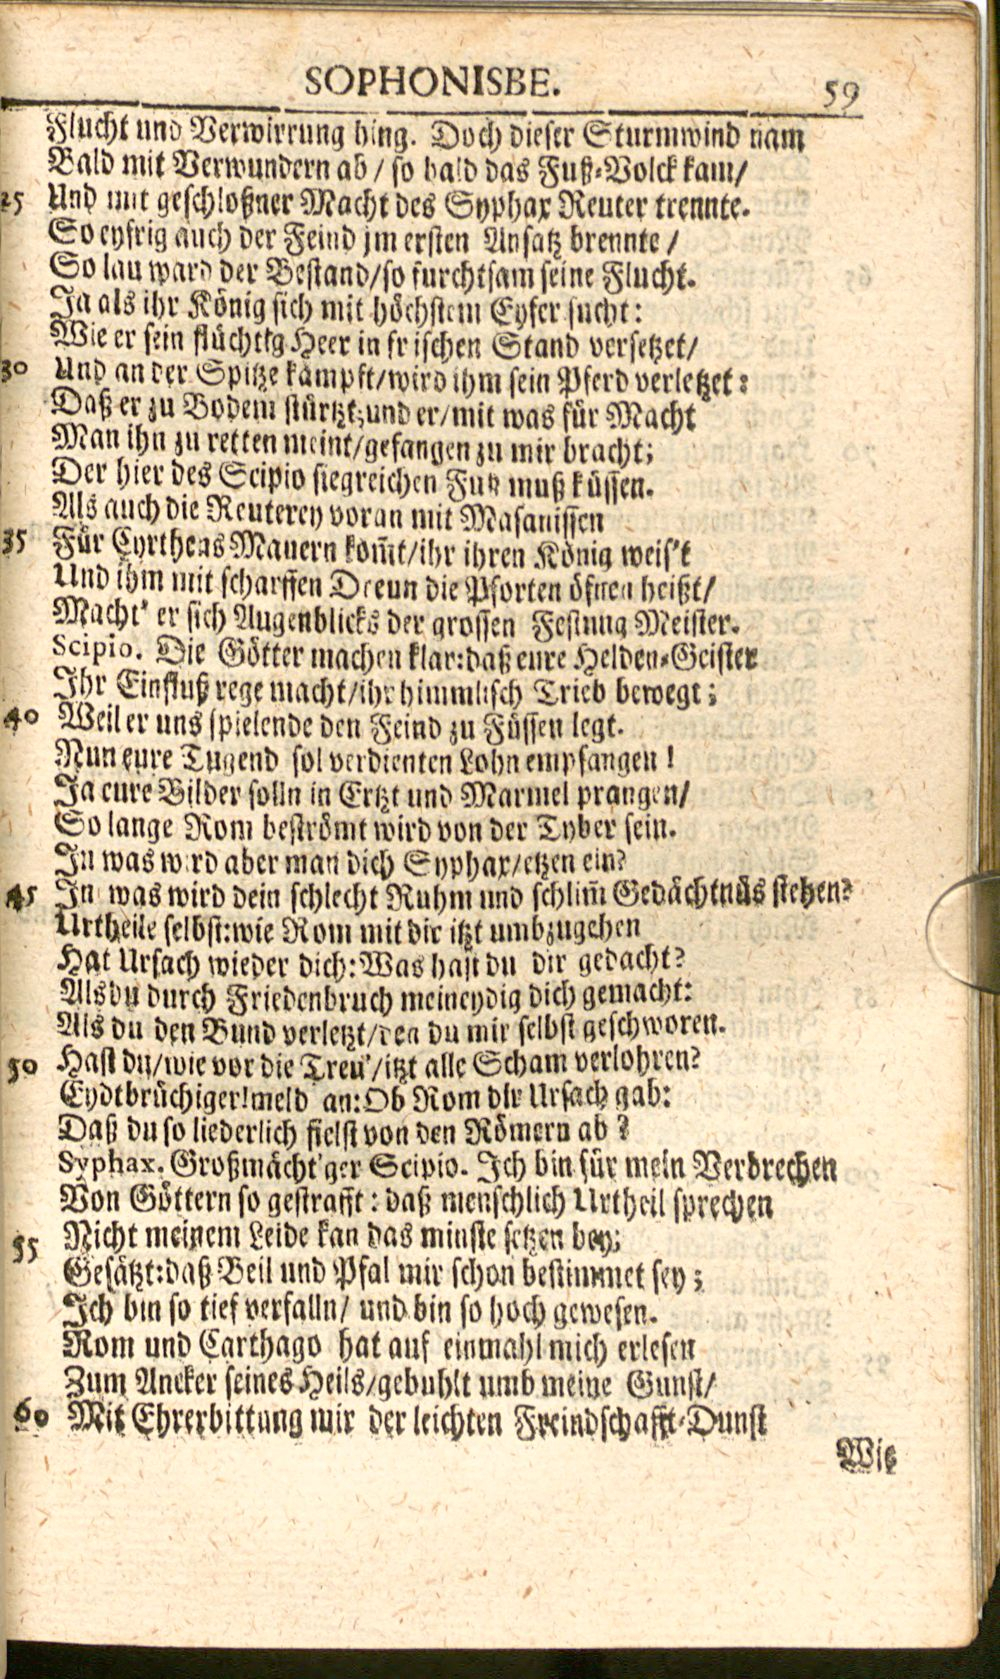 SOPHONISBE. 59
Flucht und Verwirrung hing. Doch dieser Sturmwind nam
Bald mit Verwundern ab / so bald das Fuß-Volck kam/
25 Und mit geschloßner Macht des Syphax Reuter trennte.
So eyfrig auch der Feind jm ersten Ansatz brennte /
So lau ward der Bestand/so furchtsam seine Flucht.
Ja als ihr König sich mit höchstem Eyfer sucht:
Wie er sein flüchtig Heer in frischen Stand versetzet/
30 Und an der Spitze kämpft/wird ihm sein Pferd verletzet:
Daß er zu Bodem stürtzt; und er/mit was für Macht
Man ihn zu retten meint/gefangen zu mir bracht;
Der hier des Scipio siegreichen Fuß muß küssen.
Als auch die Reuterey voran mit Masanissen
35 Für Cyrthens Mauern kom̃t/ihr ihren König weis't
Und ihm mit scharffen Dreun die Pforten öfnen heißt/
Macht' er sich Augenblicks der grossen Festung Meister.
Scipio. Die Götter machen klar: daß eure Helden-Geister
Ihr Einfluß rege macht/ihr himmlisch Trieb bewegt;
40 Weil er uns spielende den Feind zu Füssen legt.
Nun eure Tugend sol verdienten Lohn empfangen!
Ja eure Bilder solln in Ertzt und Marmel prangen/
So lange Rom beströmt wird von der Tyber sein.
In was wird aber man dich Syphax/etzen ein?
45 In was wird dein schlecht Ruhm und schlim̃ Gedächtnüs stehen?
Urtheile selbst: wie Rom mit dir itzt umbzugehen
Hat Ursach wieder dich: Was hast du dir gedacht?
Als du durch Friedenbruch meineydig dich gemacht:
Als du den Bund verletzt/den du mir selbst geschworen.
50 Hast du/wie vor die Treu'/itzt alle Scham verlohren?
Eydtbrüchiger! meld an: Ob Rom dir Ursach gab:
Daß du so liederlich fielst von den Römern ab?
Syphax. Großmächt'ger Scipio. Ich bin für mein Verbrechen
Von Göttern so gestrafft: daß menschlich Urtheil sprechen
55 Nicht meinem Leide kan das minste setzen bey;
Gesätzt: daß Beil und Pfal mir schon bestimmet sey;
Ich bin so tief verfalln/ und bin so hoch gewesen.
Rom und Carthago hat auf einmahl mich erlesen
Zum Ancker seines Heils/gebuhlt umb meine Gunst/
60 Mit Ehrerbittung mir der leichten Freindschafft-Dunst
Wie